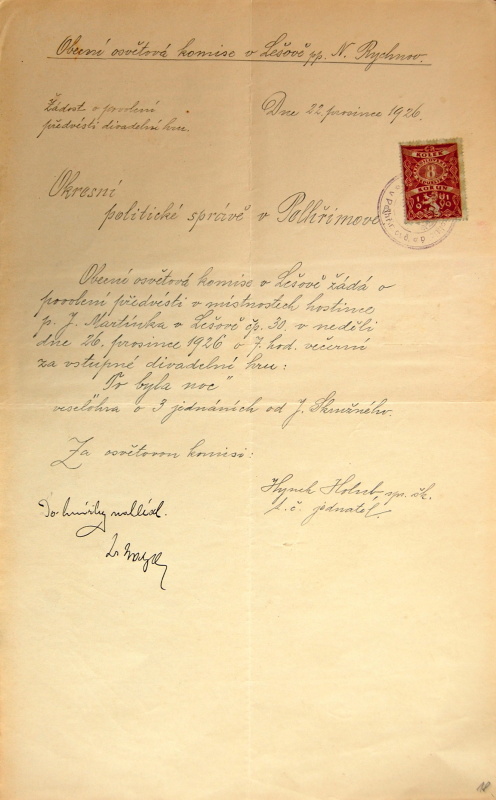 Obecní osvětová komise v Lešově pp. N. Rychnov.
Žádost o povolení
předvésti divadelní hru.
Dne 22. prosince 1926.
KOLEK
8
KORUN
Okresní
politické správě v Pelhřimově
Obecní osvětová komise v Lešově žádá o
povolení předvésti v místnostech hostince
p. J. Martínka v Lešově čp. 30. v neděli
dne 26. prosince 1926 o 7. hod. večerní
za vstupné divadelní hru:
"To byla noc"
veselohra o 3 jednáních od J. Skružného.
Za osvětovou komisi:
Hynek Holub sp. šk.
t. č. jednatel.